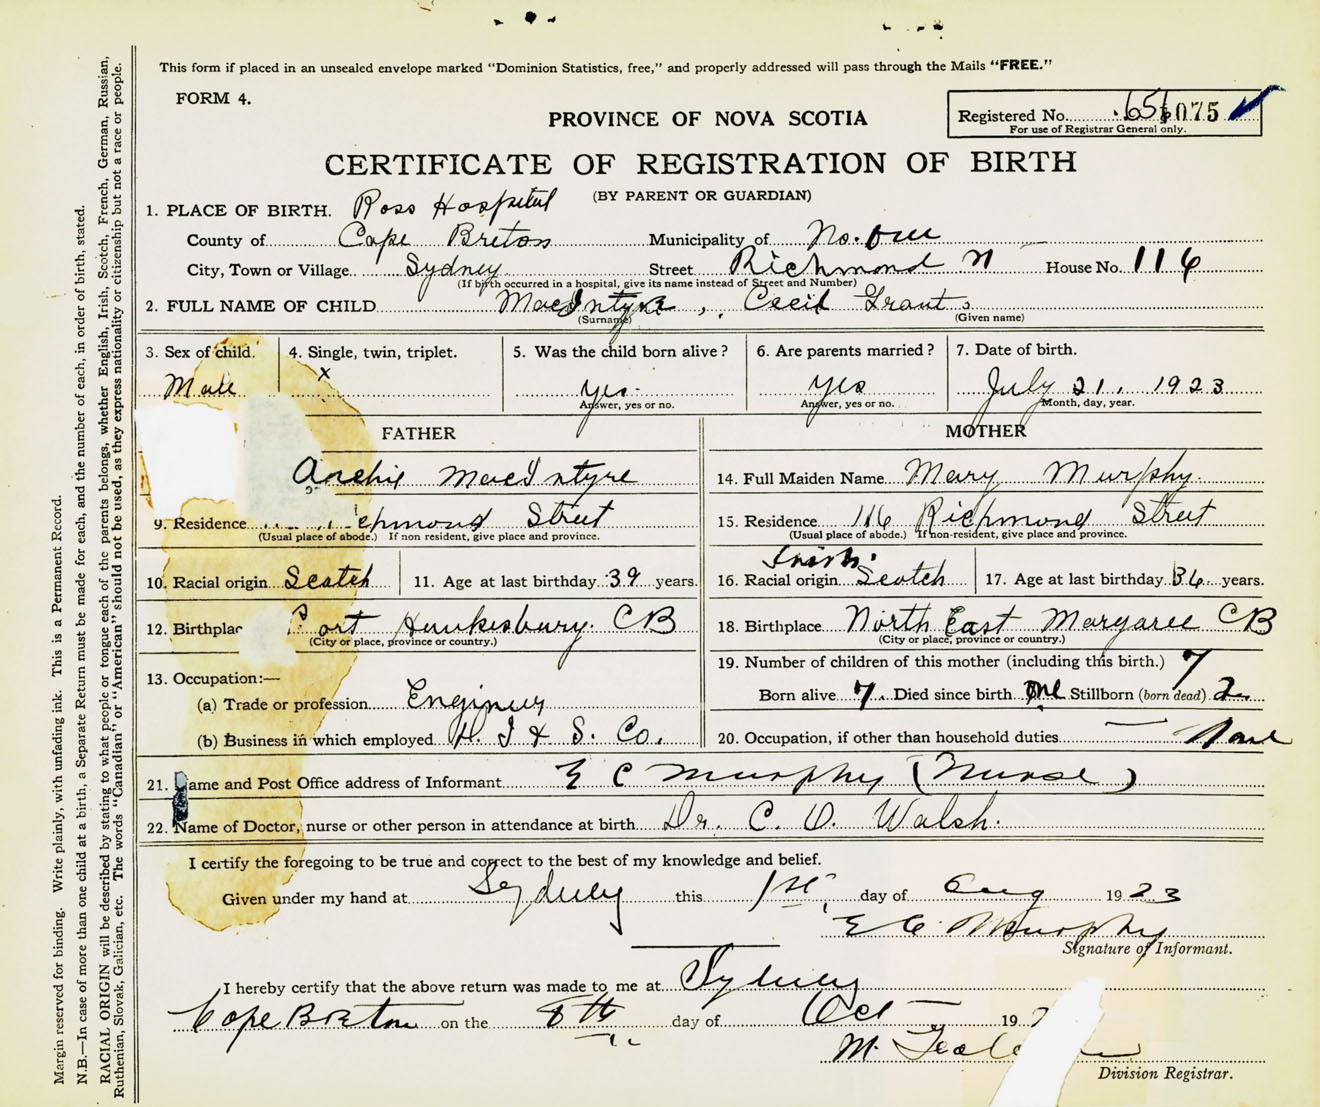 This form if placed in an unsealed envelope marked "Dominion Statistics, free," and properly addressed will pass through the Mails "FREE."
FORM 4.
PROVINCE OF NOVA SCOTIA
Registered No. 075
For use of Registrar General only.
CERTIFICATE OF REGISTRATION OF BIRTH
(BY PARENT OR GUARDIAN)
1. PLACE OF BIRTH. Ross Hospital
County of Cape Breton Municipality of No. One
City, Town or Village Sydney Street Richmond House No. 116
(If birth occurred in a hospital, give its name instead of Street and Number)
2. FULL NAME OF CHILD MacIntyre, Cecil Grant
(Surname) (Given name)
3. Sex of child. 4. Single, twin, triplet. 5. Was the child born alive? 6. Are parents married? 7. Date of birth.
Male x yes yes July 21, 1923
Answer, yes or no. Answer, yes or no. Month, day, year.
FATHER MOTHER
Archie MacIntyre 14. Full Maiden Name Mary Murphy
9. Residence Street 15. Residence 116 Richmond Street
(Usual place of abode.) If non resident, give place and province. (Usual place of abode.) If non-resident, give place and province.
Irish
10. Racial origin Scotch 11. Age at last birthday 39 years. 16. Racial origin Scotch 17. Age at last birthday 36 years.
12. Birthplac Port Hawkesbury. CB 18. Birthplace North East Margaree CB
(City or place, province or country.) (City or place, province or country.)
13. Occupation:— 19. Number of children of this mother (including this birth.) 7
(a) Trade or profession Engineer Born alive 7 Died since birth one Stillborn (born dead) 2
(b) Business in which employed D. I & S. Co. 20. Occupation, if other than household duties None
21. ame and Post Office address of Informant E C Murphy (Nurse)
22. Name of Doctor, nurse or other person in attendance at birth Dr. C. O. Walsh.
I certify the foregoing to be true and correct to the best of my knowledge and belief.
Given under my hand at Sydney this 1st day of Aug 1923
E C Murphy
Signature of Informant.
I hereby certify that the above return was made to me at Sydney
Cape Breton on the 8th day of Oct 19
M.
Division Registrar.
Margin reserved for binding. Write plainly, with unfading ink. This is a Permanent Record.
N.B.—In case of more than one child at a birth, a Separate Return must be made for each, and the number of each, in order of birth, stated.
RACIAL ORIGIN will be described by stating to what people or tongue each of the parents belongs, whether English, Irish, Scotch, French, German, Russian,
Ruthenian, Slovak, Galician, etc. The words "Canadian" or "American" should not be used, as they express nationality or citizenship but not a race or people.